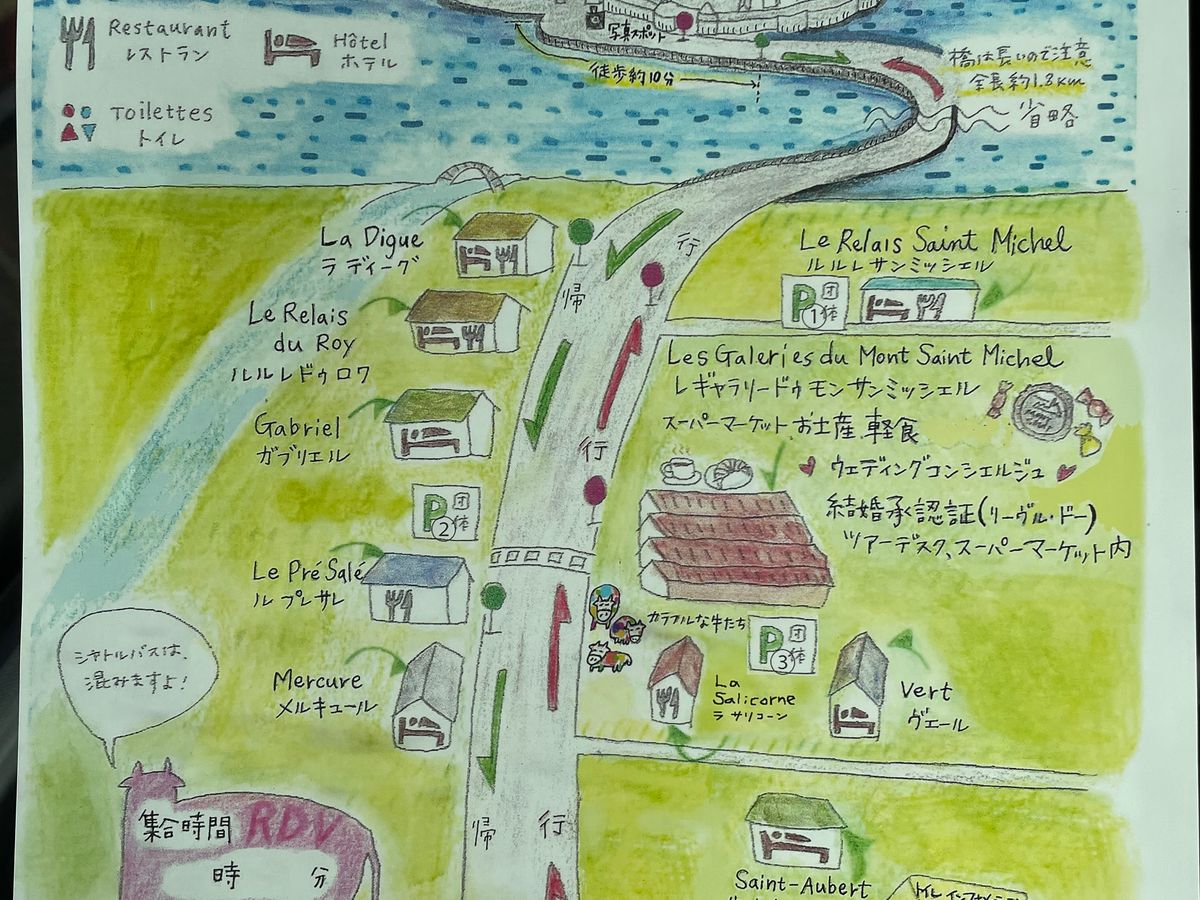 Restaurant
レストラン
Hôtel
ホテル
Toilettes
トイレ
写真スポット
徒歩約10分
橋は長いので注意
全長約1.8km
省略
La Digue
ラ ディーグ
行
帰
Le Relais Saint Michel
ルルレサンミッシェル
P 団体
1
Le Relais
du Roy
ルルレドゥロワ
Les Galeries du Mont Saint Michel
レギャラリードゥモンサンミッシェル
スーパーマーケット お土産 軽食
Gabriel
ガブリエル
行
ウェディングコンシェルジュ
結婚承認証(リーヴル・ドー)
ツアーデスク、スーパーマーケット内
P 団体
2
Le Pré Salé
ル プレサレ
カラフルな牛たち
P 団体
3
シャトルバスは、
混みますよ!
Mercure
メルキュール
La
Salicorne
ラ サリコーン
Vert
ヴェール
集合時間 RDV
時 分
帰
行
Saint-Aubert